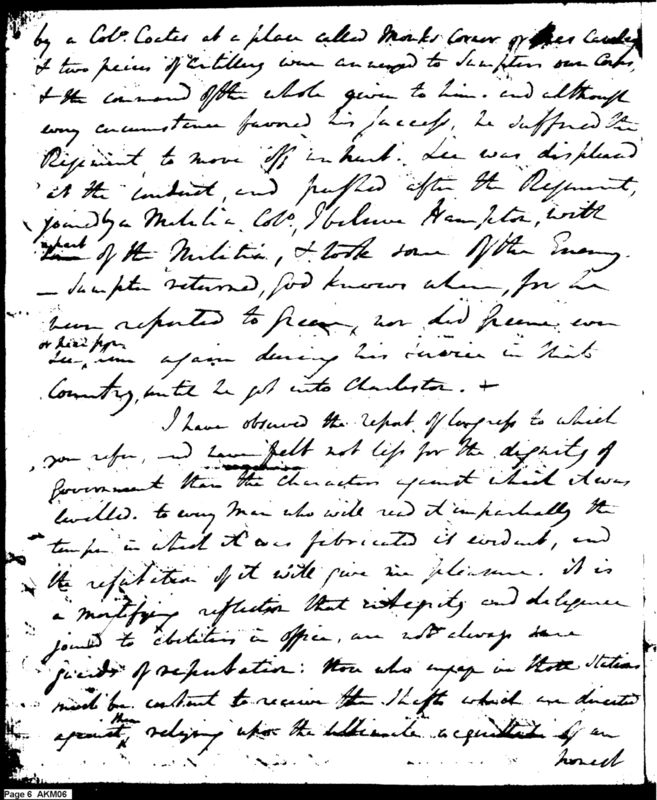 by a Col.º Coates at a place called Monks Corner or
& two peices of artillery were annexed to Sumpters own Corps,
& the command of the whole given to him. and although
every circumstance favored his success, he suffered the
Regiment to move off unhurt. Lee was displeased
at the conduct, and pushed after the Regiment,
joined by a Militia Col.º, I believe Hampton, with
a part of the Militia, & took some of the Enemy.
— Sumpter returned, god knows where, for he
never reported to Greene, nor did Greene ever
or hear from
see, him again during his service in that
Country, until he got into Charleston. +
I have observed the report of Congress to which
you refer, and have felt not less for the dignity of
Government than the Characters against which it was
levelled. to every Man who will read it impartially the
temper in which it was fabricated is evident, and
the refutation of it will give me pleasure. it is
a mortifying reflection that integrity and diligence
joined to abilities in office, are not always sure
guards of reputation: those who engage in those stations
must be content to receive the shafts which are directed
them
against, relying upon the ultimate acquittal of an
honest
Page 6 AKM06